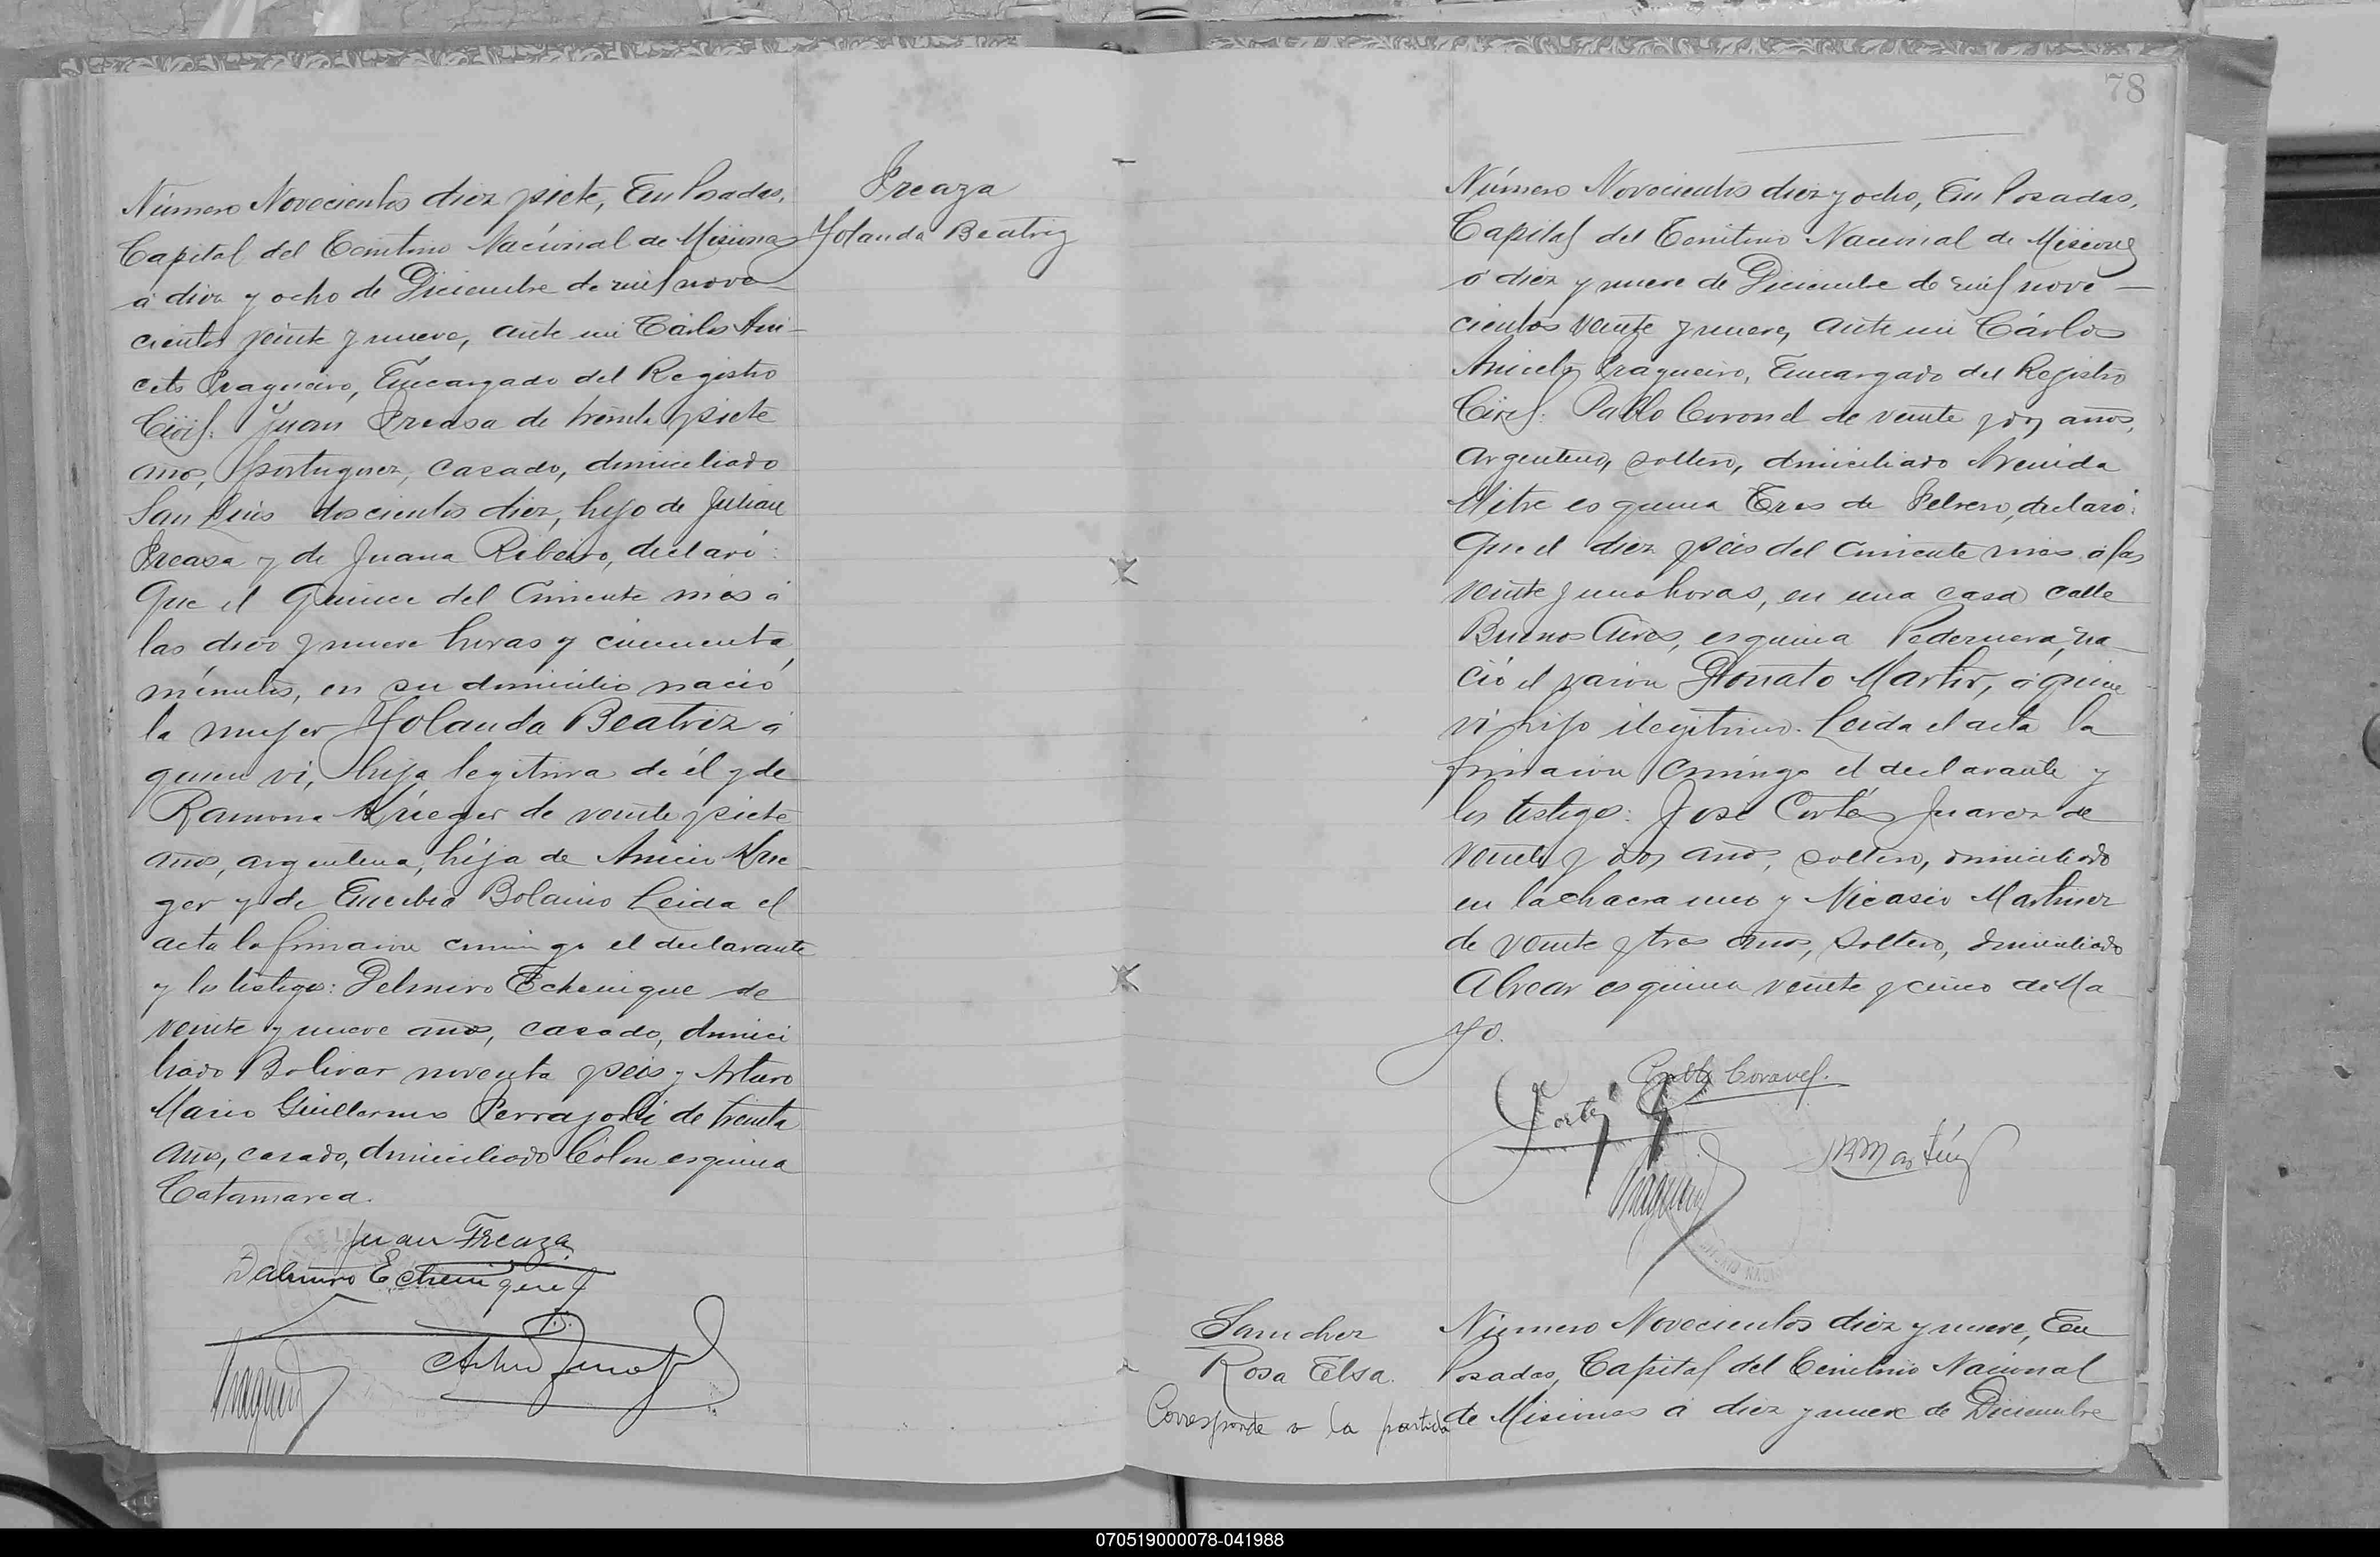 Número Novecientos diez y siete, En Posadas,
Capital del Territorio Nacional de Misiones
á diez y ocho de Diciembre de mil nove-
cientos veinte y nueve, ante mi Cárlos Ani-
ceto Fragueiro, Encargado del Registro
Civil: Juan Freasa de treinta y siete
años, portuguez, casado, domiciliado
San Luis doscientos diez, hijo de Julian
Freasa y de Juana Ribeiro, declaró:
Que el quince del corriente mes á
las diez y nueve horas y cincuenta
minutos, en su domicilio nació
la mujer Yolanda Beatriz á
quien vi, hija legitima de él y de
Ramona Krieger de veinte y siete
años, argentina, hija de Anicio Krie-
ger y de Eusebia Bolaino Leida el
acta la firmaron conmigo el declarante
y los testigos: Delmiro Echenique de
veinte y nueve años, casado, domici
liado Bolivar noventa y seis y Arturo
Mario Guillermo Perrajoli de treinta
años, casado, domiciliado Colon esquina
Catamarca.
Juan Freaza
Dalmiro Echenique
Freaza
Yolanda Beatriz
78
Número Novecientos diez y ocho, En Posadas,
Capital del Territorio Nacional de Misiones
á diez y nueve de Diciembre de mil nove-
cientos veinte y nueve, ante mi Cárlos
Aniceto Fragueiro, Encargado del Registro
Civil: Pablo Coronel de veinte y dos años,
argentino, soltero, domiciliado Avenida
Mitre esquina Tres de Febrero, declaró:
Que el diez y seis del corriente mes á las
veinte y una horas, en una casa calle
Buenos Aires, esquina Pedernera, na-
ció el varon Donato Martir, á quien
vi hijo ilegitimo. Leida el acta la
firmaron conmigo el declarante y
los testigos: José Cortés Juarez de
veinte y dos años, soltero, domiciliado
en la chacra uno y Nicasio Martinez
de veinte y tres años, soltero, domiciliado
Alvear esquina veinte y cinco de Ma
yo.
Pablo Coronel.
Sanchez
Rosa Elsa.
Corresponde a la partida
Número Novecientos diez y nueve, En
Posadas, Capital del Territorio Nacional
de Misiones á diez y nueve de Diciembre
070519000078-041988